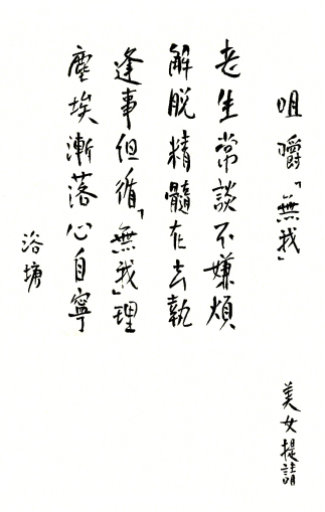 咀嚼「無我」
美女提請
老生常談不嫌煩
解脫精髓在去執
逢事但循「無我」理
塵埃漸落心自寧
浴塘